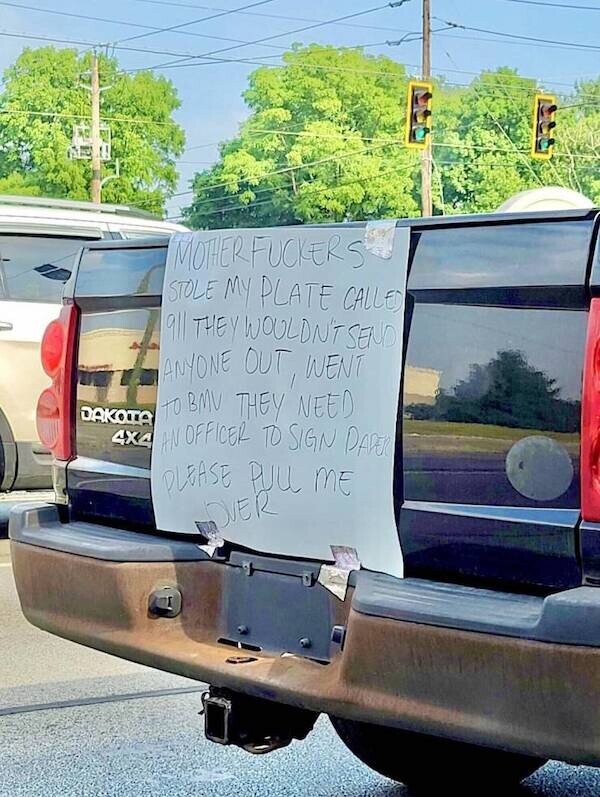 MOTHERFUCKERS
STOLE MY PLATE CALLED
911 THEY WOULDN'T SEND
ANYONE OUT, WENT
TO BMV THEY NEED
AN OFFICER TO SIGN PAPER
PLEASE PULL ME
OVER
DAKOTA
4X4